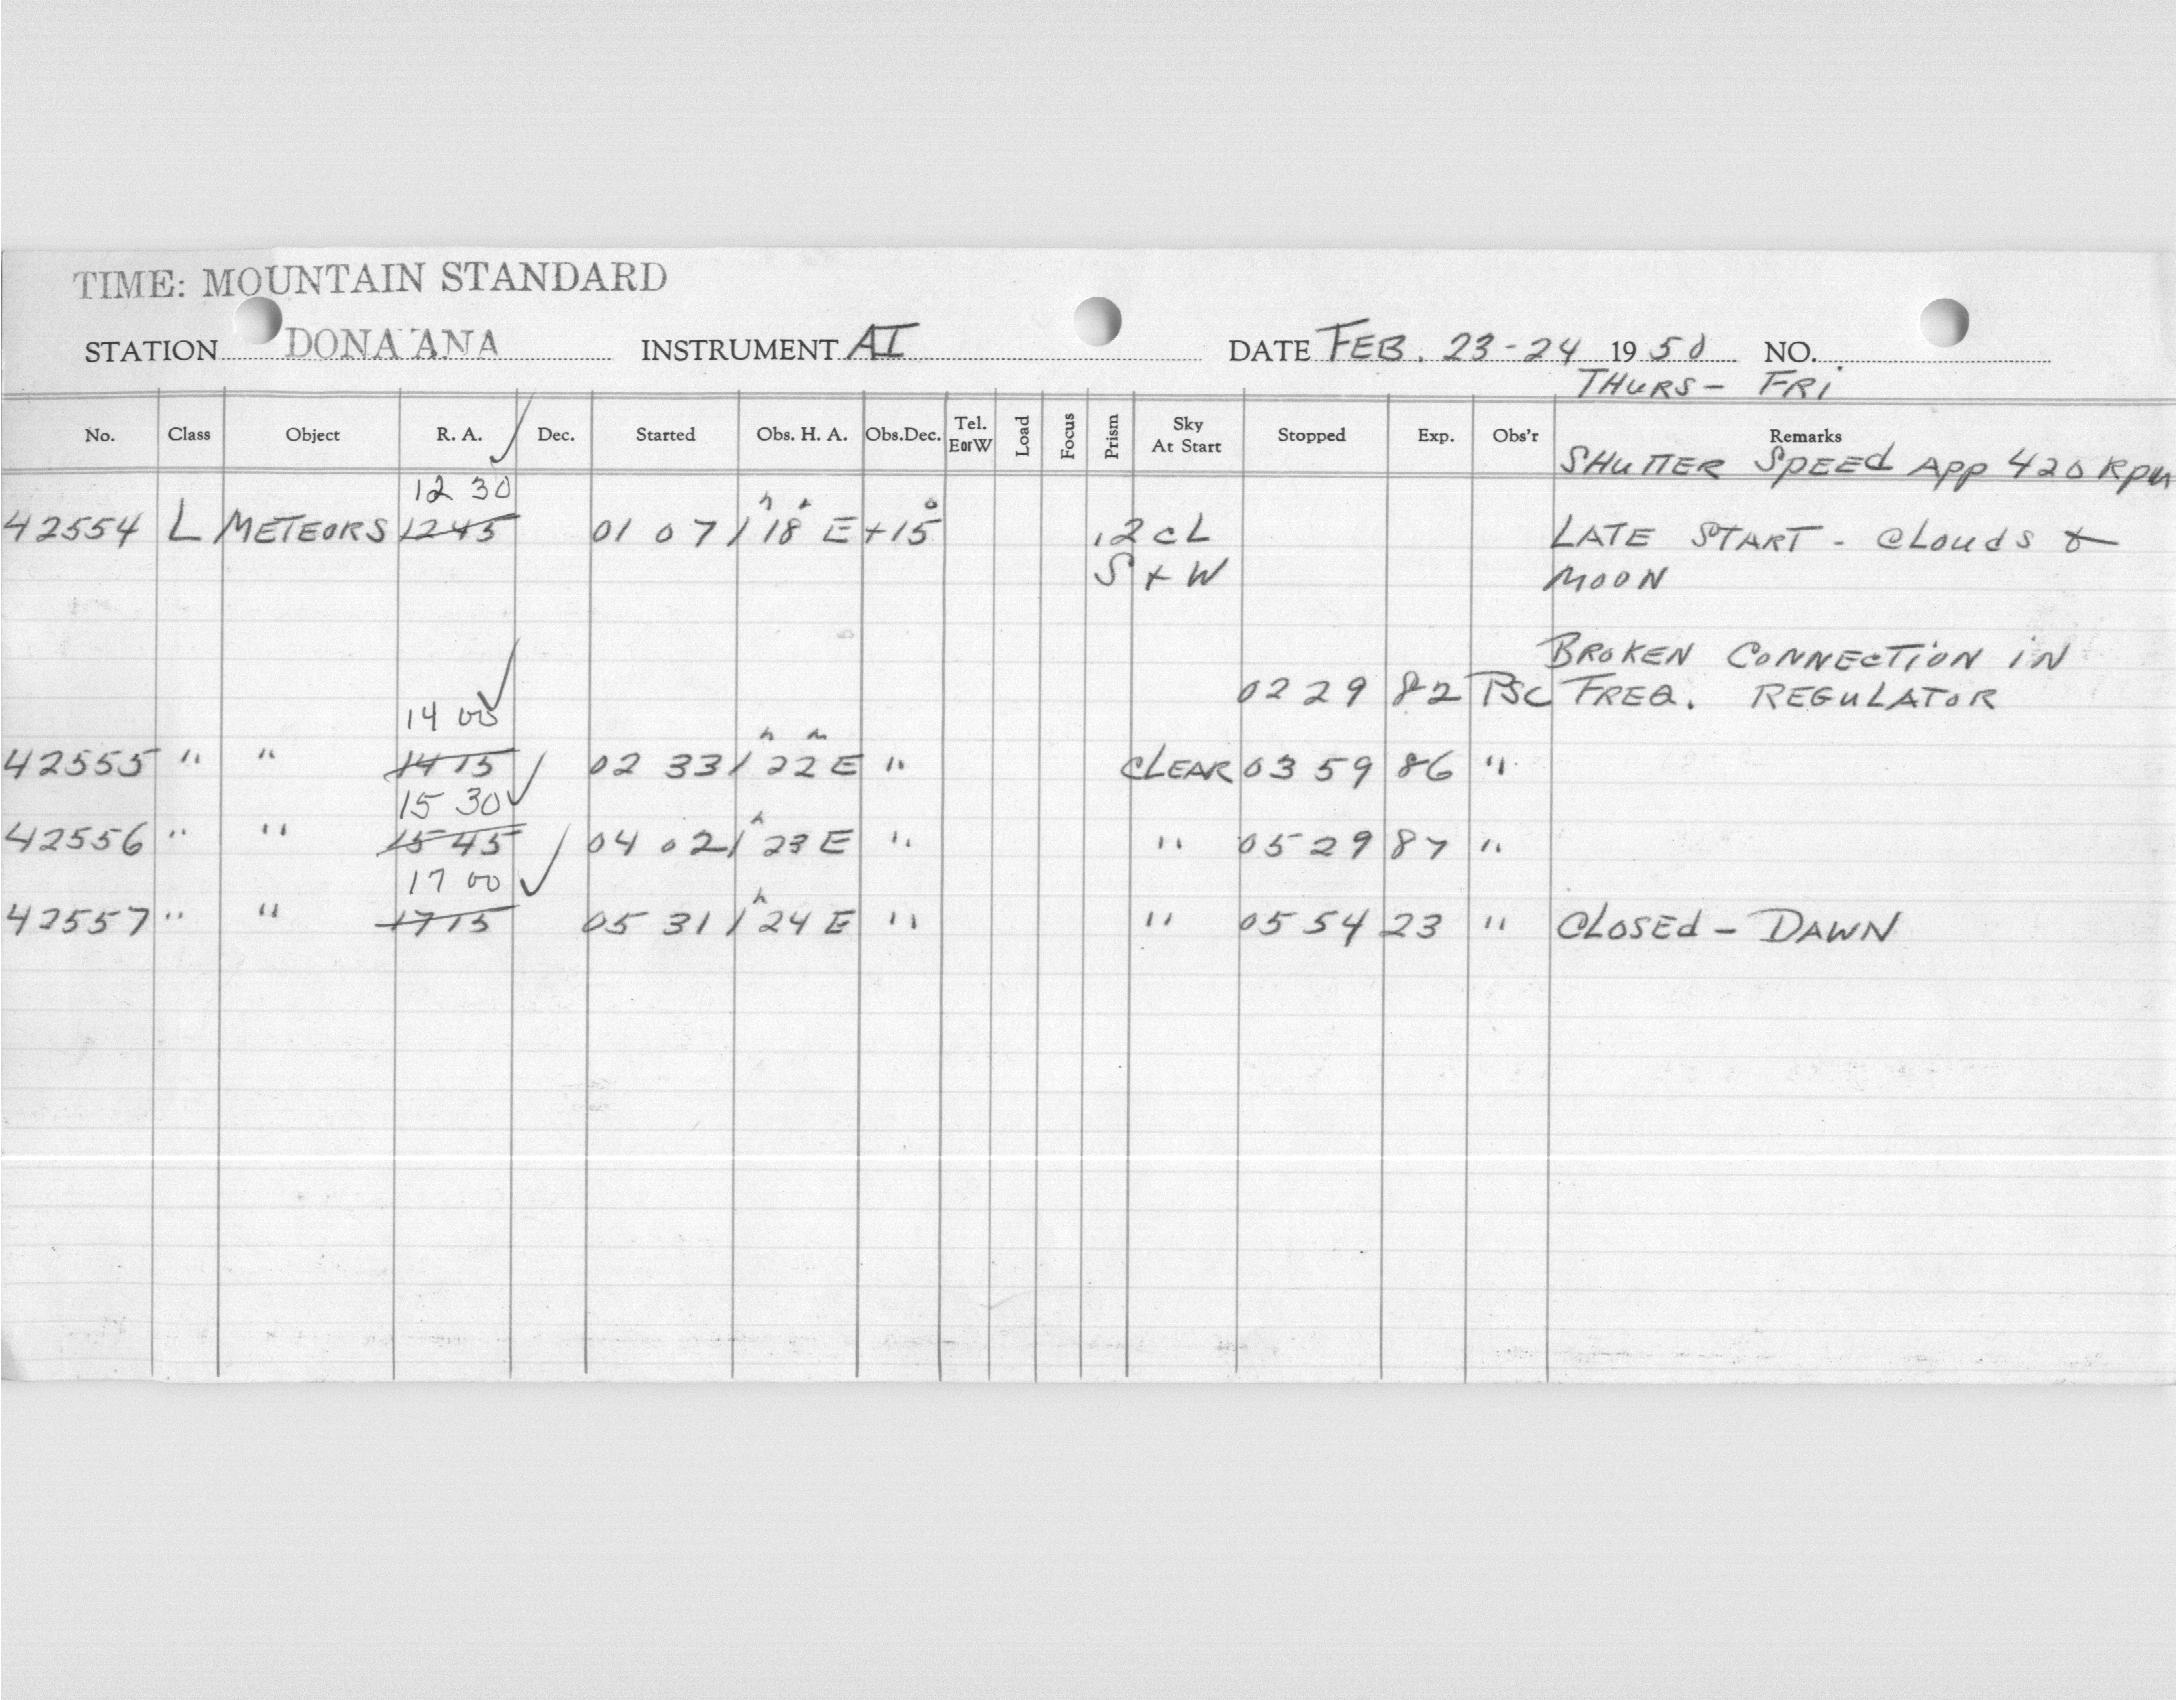 TIME: MOUNTAIN STANDARD
STATION DONA ANA INSTRUMENT AI DATE FEB. 23-24 1950 NO.
THURS- FRI
No. Class Object R. A. Dec. Started Obs. H. A. Obs.Dec. Tel. EorW Load Focus Prism Sky At Start Stopped Exp. Obs'r Remarks
SHUTTER SPEEd APP 420 RPM
12 30
42554 L METEORS 1245 01 07 1h 18m E +15° .2 cL LATE START - CLoudS &
S + W MOON
BROKEN CONNECTION IN
02 29 82 PSC FREQ. REGULATOR
14 00
42555 " " 1415 02 33 1h 22m E " CLEAR 03 59 86 "
15 30
42556 " " 1545 04 02 1h 23 E " " 05 29 87 "
17 00
42557 " " 1715 05 31 1h 24 E " " 05 54 23 " CLOSEd - DAWN